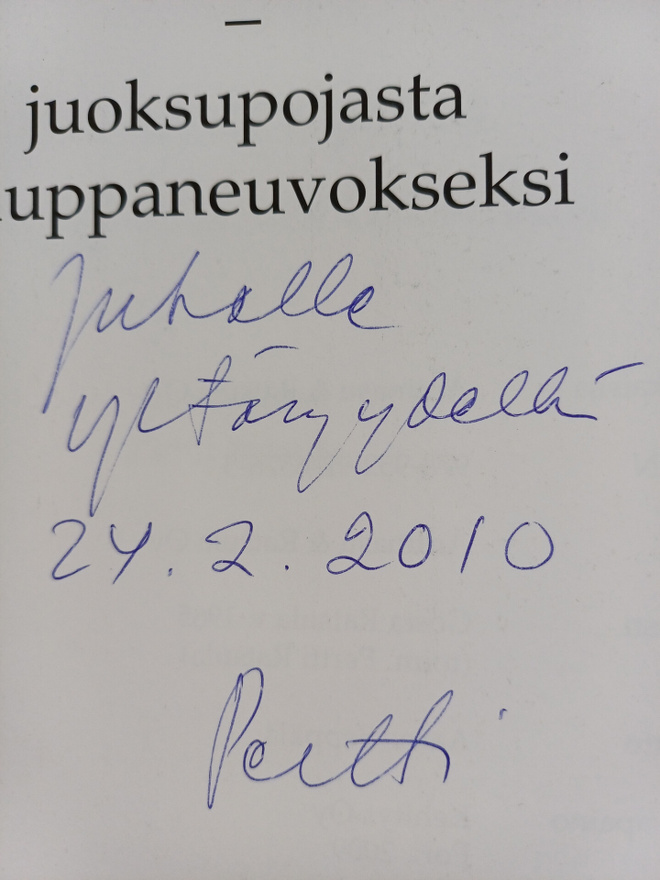 –
juoksupojasta
uppaneuvokseksi
Juhalle
ystävyydellä
24.2.2010
Pertti